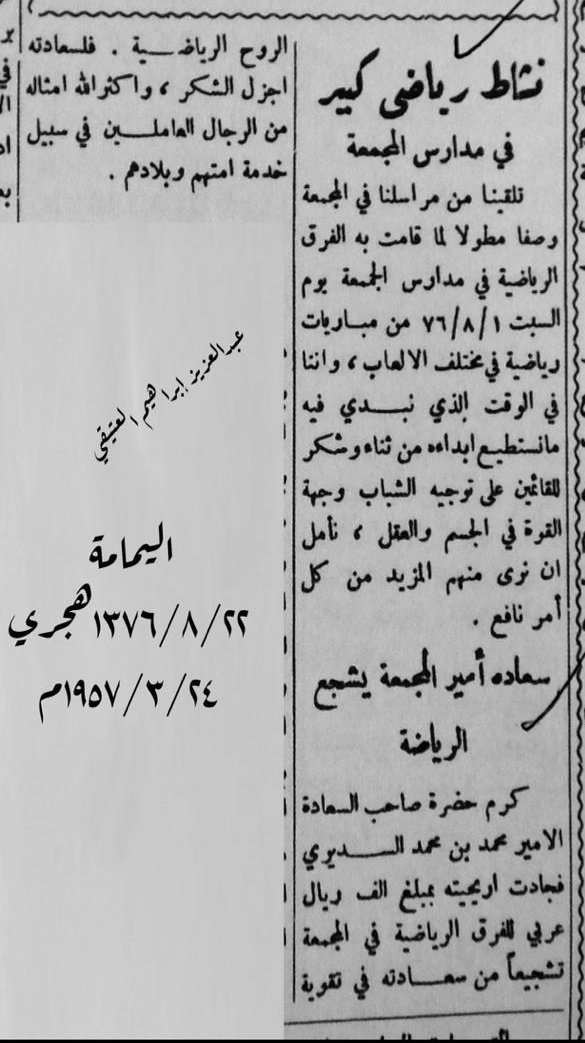 نشاط رياضي كبير
في مدارس المجمعة
تلقينا من مراسلنا في المجمعة
وصفا مطولا لما قامت به الفرق
الرياضية في مدارس المجمعة يوم
السبت ٧٦/٨/١ من مباريات
رياضية في مختلف الالعاب ، واننا
في الوقت الذي نبدي فيه
مانستطيع ابداءه من ثناء وشكر
للقائمين على توجيه الشباب وجهة
القوة في الجسم والعقل ، نأمل
ان نرى منهم المزيد من كل
أمر نافع .
سعاده أمير المجمعة يشجع
الرياضة
كرم حضرة صاحب السعادة
الامير محمد بن محمد السديري
فجادت اريحيته بمبلغ الف ريال
عربي للفرق الرياضية في المجمعة
تشجيعاً من سعادته في تقوية
الروح الرياضية . فلسعادته
اجزل الشكر ، واكثر الله امثاله
من الرجال العاملين في سبيل
خدمة امتهم وبلادهم .
عبدالعزيز إبراهيم العتيقي
اليمامة
١٣٧٦/٨/٢٢هجري
١٩٥٧/٣/٢٤م